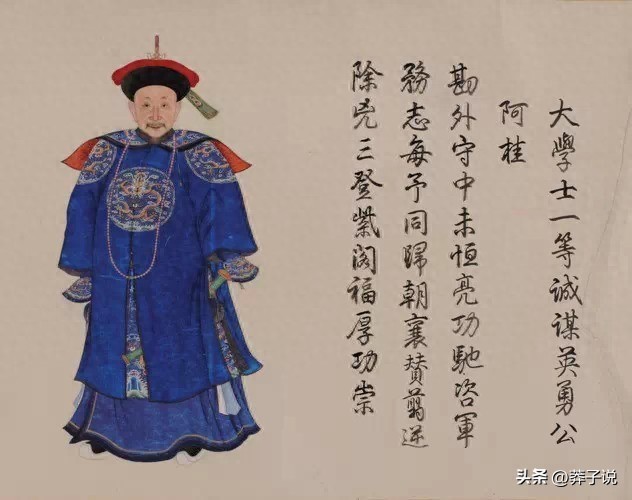 大學士一等誠謀英勇公
阿桂
勘外守中未恒亮功馳咨軍
務志每予同歸朝襄賛翦逆
除兇三登紫閣福厚功崇
头条 @莽子说